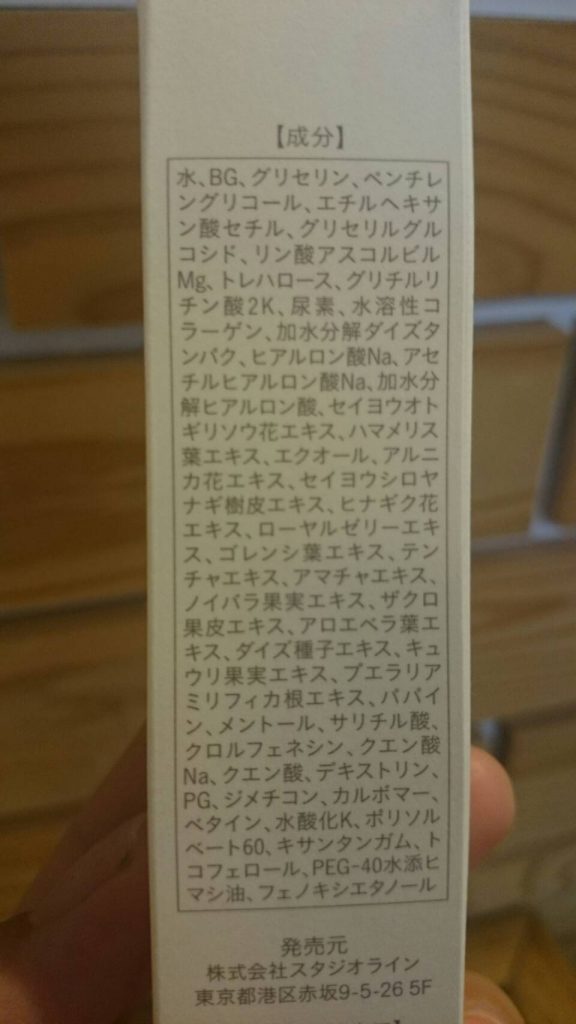 【成分】
水、BG、グリセリン、ペンチレ
ングリコール、エチルヘキサ
ン酸セチル、グリセリルグル
コシド、リン酸アスコルビル
Mg、トレハロース、グリチルリ
チン酸2K、尿素、水溶性コ
ラーゲン、加水分解ダイズタ
ンパク、ヒアルロン酸Na、アセ
チルヒアルロン酸Na、加水分
解ヒアルロン酸、セイヨウオト
ギリソウ花エキス、ハマメリス
葉エキス、エクオール、アルニ
カ花エキス、セイヨウシロヤ
ナギ樹皮エキス、ヒナギク花
エキス、ローヤルゼリーエキ
ス、ゴレンシ葉エキス、テン
チャエキス、アマチャエキス、
ノイバラ果実エキス、ザクロ
果皮エキス、アロエベラ葉エ
キス、ダイズ種子エキス、キュ
ウリ果実エキス、プエラリア
ミリフィカ根エキス、パパイ
ン、メントール、サリチル酸、
クロルフェネシン、クエン酸
Na、クエン酸、デキストリン、
PG、ジメチコン、カルボマー、
ベタイン、水酸化K、ポリソル
ベート60、キサンタンガム、ト
コフェロール、PEG-40水添ヒ
マシ油、フェノキシエタノール
発売元
株式会社スタジオライン
東京都港区赤坂9-5-26 5F